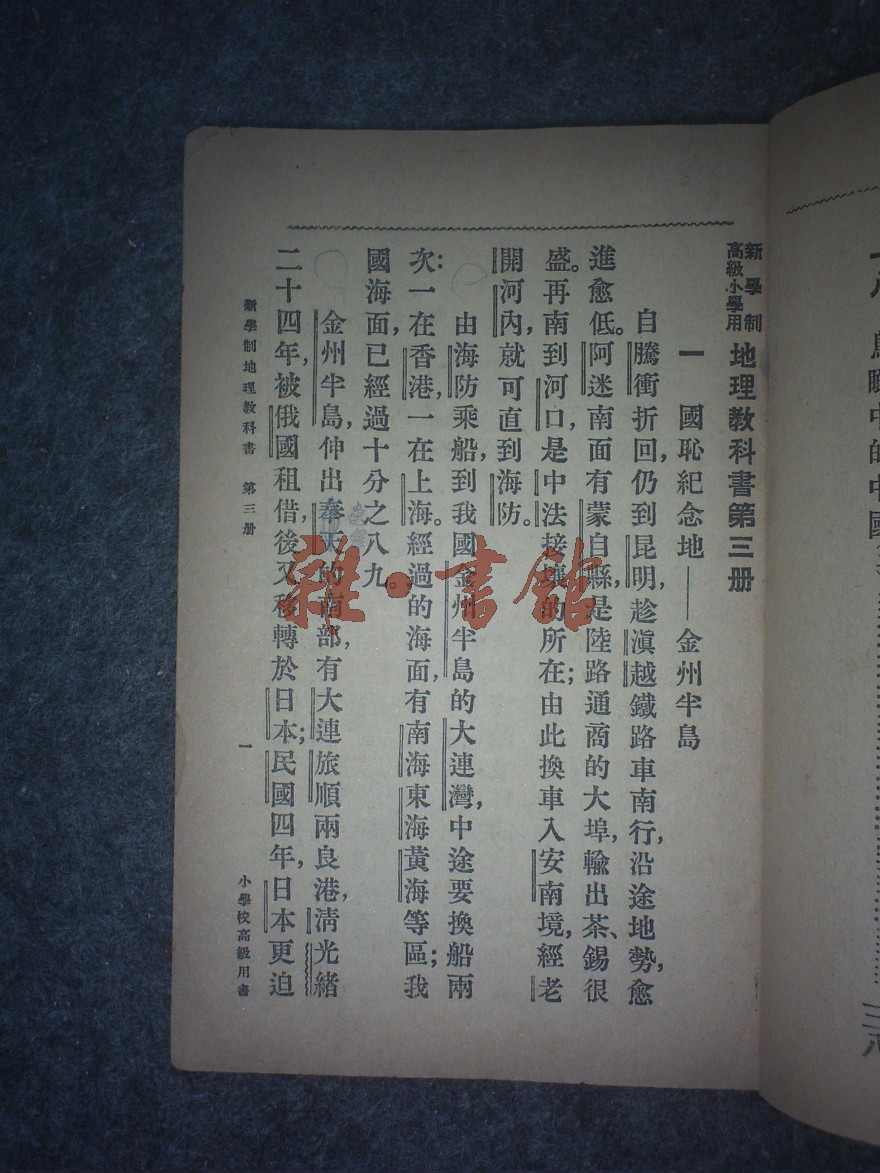 新學制
高級小學用
地理教科書第三册
一　國恥紀念地——金州半島
自騰衝折回,仍到昆明,趁滇越鐵路車南行,沿途地勢,愈
進愈低。阿迷南面有蒙自縣,是陸路通商的大埠,輸出茶、錫很
盛。再南到河口,是中法接壤的所在;由此換車入安南境,經老
開河內,就可直到海防。
由海防乘船,到我國金州半島的大連灣,中途要換船兩
次:一在香港,一在上海。經過的海面,有南海東海黃海等區;我
國海面,已經過十分之八九。
金州半島,伸出奉天的南部,有大連旅順兩良港,清光緒
二十四年,被俄國租借,後又移轉於日本;民國四年,日本更迫
新學制地理教科書　第三册
一
小學校高級用書
雜·書館
中的中國
三八